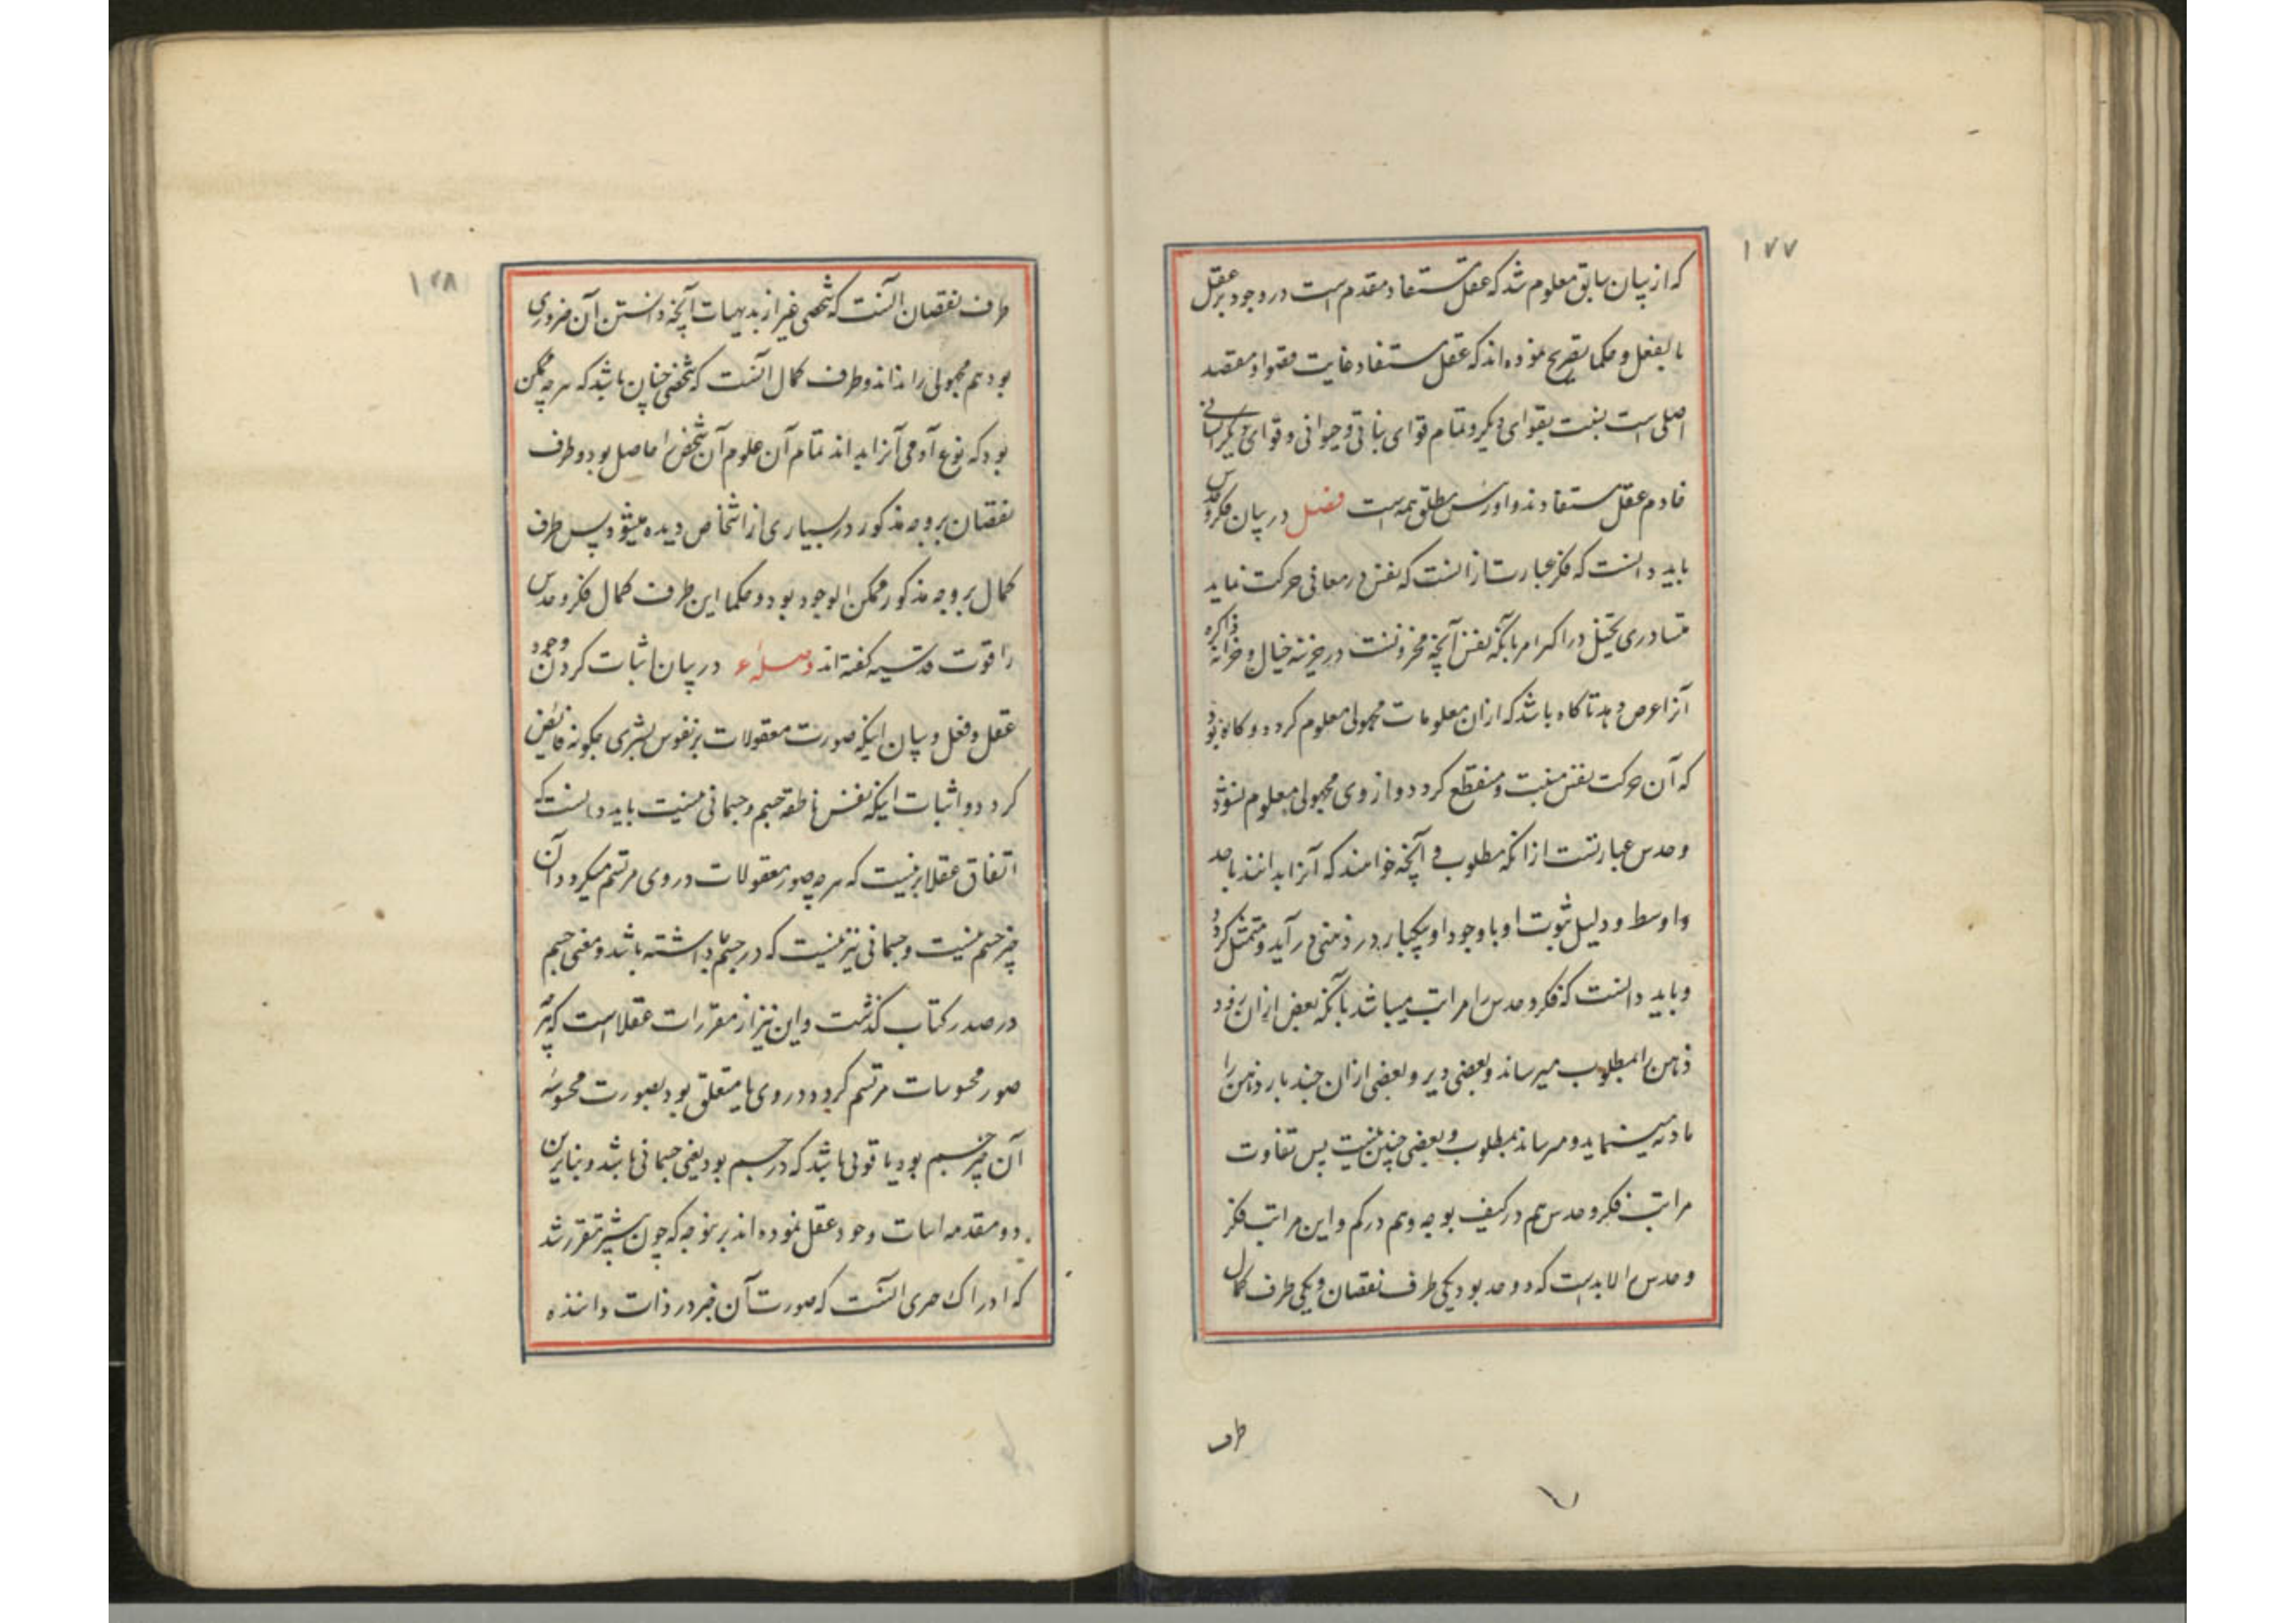 ۱۷۷
که از بیان سابق معلوم شد که عقل مستفاد مقدم است در وجود بر عقل
بالفعل و حکما تصریح نموده اند که عقل مستفاد غایت قصوا و مقصد
اصلی است بنسبت بقوای دیگر و تمام قوای نباتی و حیوانی و قوای دیگر انسانی
خادم عقل مستفادند و او رئیس مطلق همه است فصل در بیان فکر و حدس
باید دانست که فکر عبارتست از آنست که نفس در معانی حرکت نماید
بآنکه نفس آنچه مخزونست در خزینه خیال و خزانه ذاکره
آنرا عرض دهد تا گاه باشد که ازان معلومات مجهولی معلوم گردد و گاه بود
که آن حرکت نفس منبت و منقطع گردد و از وی مجهولی معلوم نشود
و حدس عبارتست از آنکه مطلوب و آنچه خواهند که آنرا بدانند با حد
و اوسط و دلیل ثبوت او با وجود او بیکبار در ذهنی در آید و متمثل گردد
و باید دانست که فکر و حدس را مراتب میباشد بآنکه بعض ازان زود
ذهن را بمطلوب میرساند و بعضی دیر و بعضی ازان چند بار ذهن را
مینماید و میرساند بمطلوب و بعضی چنین نیست پس تفاوت
مراتب فکر و حدس هم در کیف بوجه و هم در کم و این مراتب فکر
و حدس را لابد است که دو حد بود یکی طرف نقصان و یکی طرف کمال
طرف
۱۷۸
طرف نقصان آنست که شخصی غیر از بدیهیات آنچه دانستن آن ضروری
بود هم مجهولی را نداند و طرف کمال آنست که شخصی چنان باشد که هر چه ممکن
بود که نوع آدمی آنرا بداند تمام آن علوم آن شخص را حاصل بود و طرف
نقصان بر وجه مذکور در بسیاری از اشخاص دیده میشود پس طرف
کمال بر وجه مذکور ممکن الوجود بود و حکما این طرف کمال فکر و حدس
را قوت قدسیه گفته اند در بیان اثبات کردن وجود
عقل و فعل و بیان اینکه صورت معقولات بر نفوس بشری چگونه فایض
گردد و اثبات اینکه نفس ناطقه جسم و جسمانی نیست باید دانست که
اتفاق عقلا برینست که هر چه صور معقولات در وی مرتسم میگردد آن
چیز جسم نیست و جسمانی نیز نیست که در جسم داشته باشد و معنی جسم
در صدر کتاب گذشت و این نیز از مقررات عقلا است که هر چه
صور محسوسات مرتسم گردد در وی یا متعلق بود بصورت محسوسه
آن چیز جسم بود یا قوتی باشد که در جسم بود یعنی جسمانی باشد و بنابرین
دو مقدمه اثبات وجود عقل نموده اند برین وجه که چون پیشتر مقرر شد
که ادراک چیزی آنست که صورت آن چیز در ذات داننده